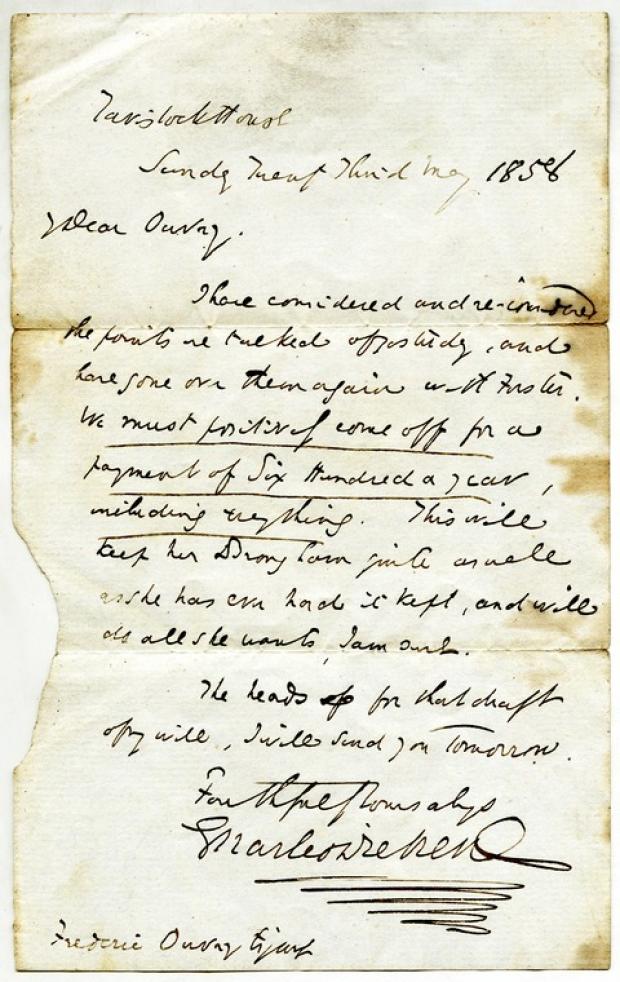 Tavistock House
Sunday Twenty Third May 1858
My Dear Ouvry.
I have considered and re-considered
the points we talked of yesterday, and
have gone over them again with Forster.
We must positively come off for a
payment of Six Hundred a year,
including everything. This will
keep her Brougham quite as well
as she has ever had it kept, and will
do all she wants, I am sure.
The heads of for that draft
of my will, I will send you tomorrow.
Faithfully Yours always
Charles Dickens
Frederic Ouvry Esquire